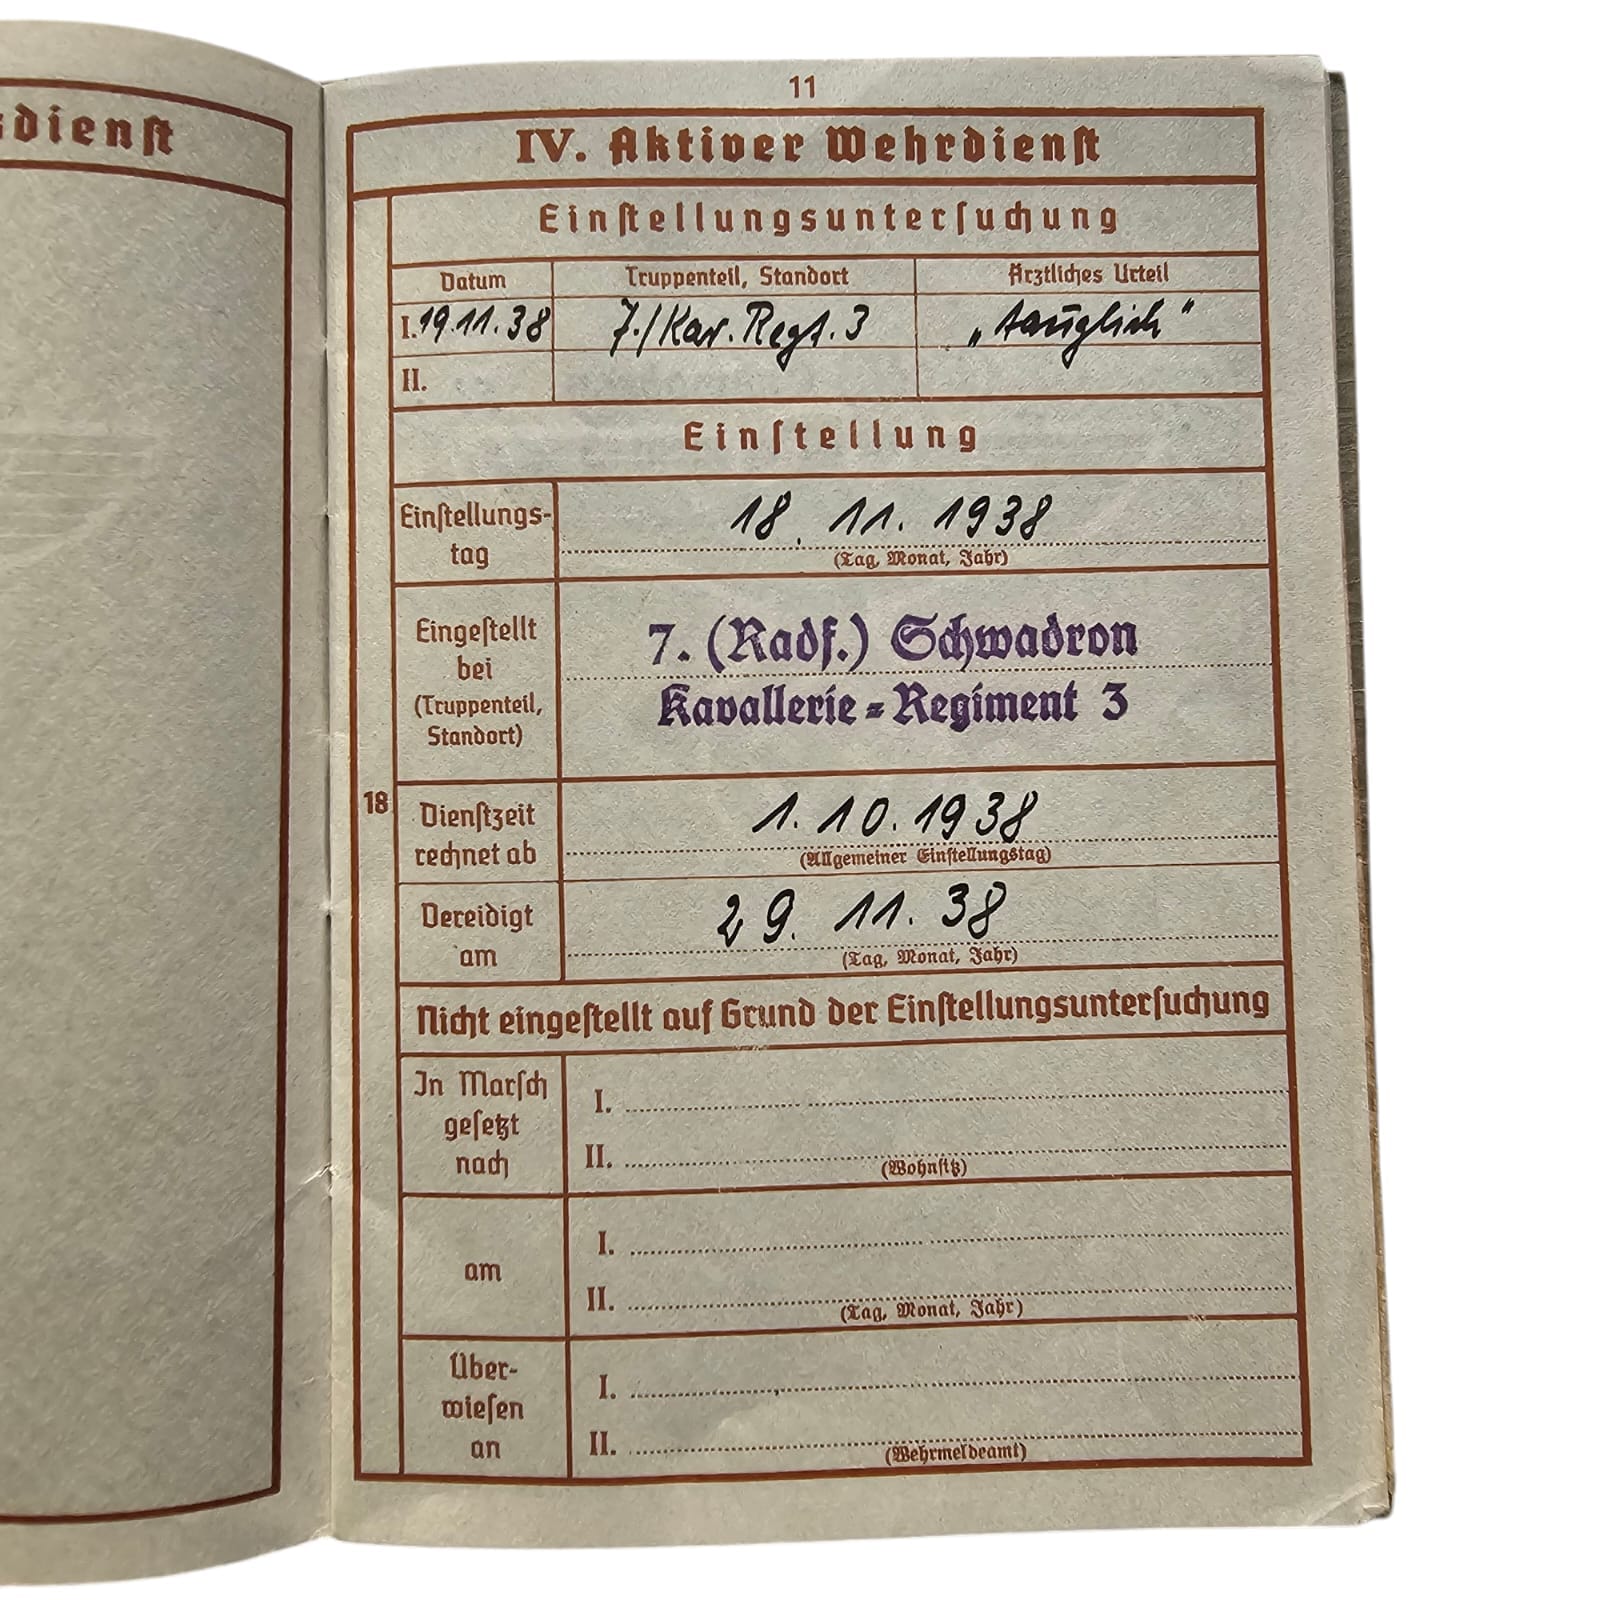 sdienst
11
IV. Aktiver Wehrdienst
Einstellungsuntersuchung
Datum Truppenteil, Standort Ärztliches Urteil
I. 19.11.38 7./Kav. Regt. 3 „tauglich"
II.
Einstellung
Einstellungs-
tag
18. 11. 1938
(Tag, Monat, Jahr)
Eingestellt
bei
(Truppenteil,
Standort)
7. (Radf.) Schwadron
Kavallerie-Regiment 3
18
Dienstzeit
rechnet ab
1. 10. 1938
(Allgemeiner Einstellungstag)
Vereidigt
am
29. 11. 38
(Tag, Monat, Jahr)
Nicht eingestellt auf Grund der Einstellungsuntersuchung
In Marsch
gesetzt
nach
I.
II.
(Wohnsitz)
am
I.
II.
(Tag, Monat, Jahr)
Über-
wiesen
an
I.
II.
(Wehrmeldeamt)